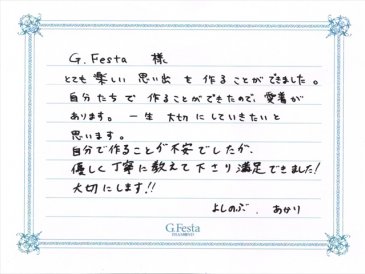 G.Festa 様
とても楽しい思い出を作ることができました。
自分たちで作ることができたので、愛着が
あります。一生大切にしていきたいと
思います。
自分で作ることが不安でしたが、
優しく丁寧に教えて下さり満足できました!
大切にします!!
よしのぶ、あかり
G.Festa